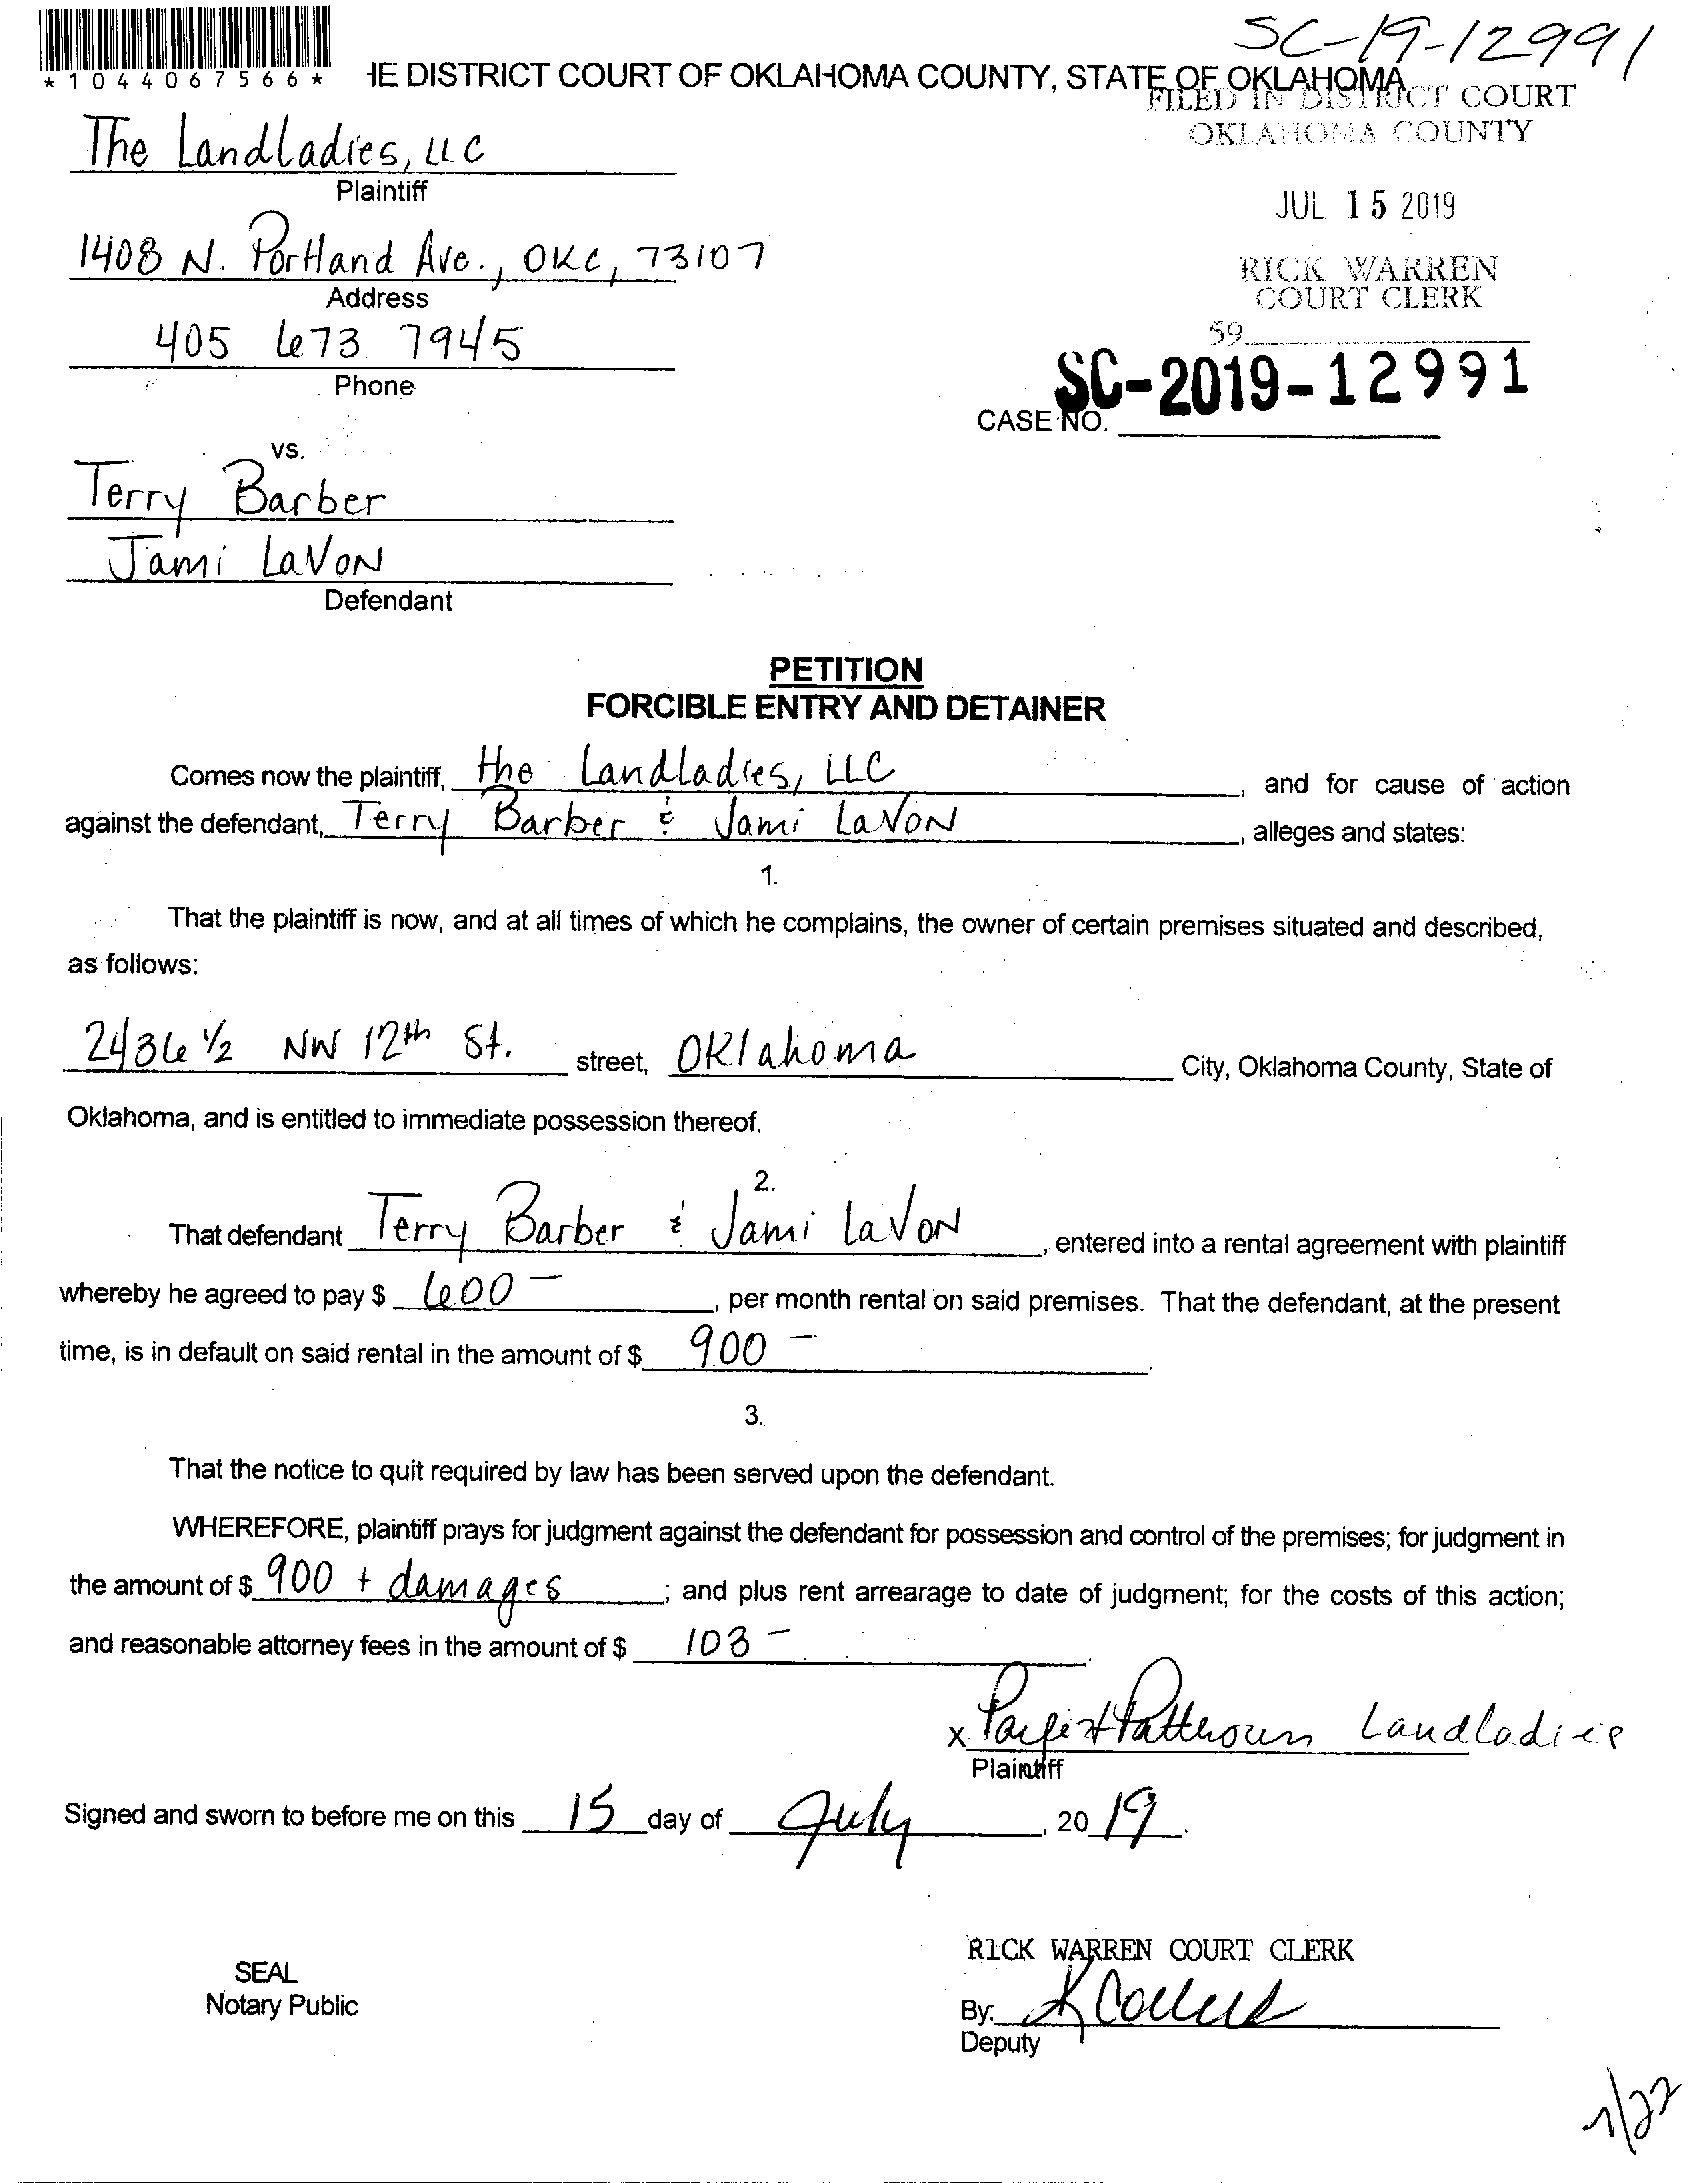 SC-19-12991
*1044067566*
HE DISTRICT COURT OF OKLAHOMA COUNTY, STATE OF OKLAHOMA
FILED IN DISTRICT COURT
OKLAHOMA COUNTY
The Landladies, LLC
Plaintiff
JUL 15 2019
1408 N. Portland Ave., OKC, 73107
Address
RICK WARREN
COURT CLERK
405 673 7945
Phone
59
SC-2019-12991
CASE NO.
vs.
Terry Barber
Jami LaVon
Defendant
PETITION
FORCIBLE ENTRY AND DETAINER
Comes now the plaintiff, the Landladies, LLC, and for cause of action
against the defendant, Terry Barber & Jami LaVon, alleges and states:
1.
That the plaintiff is now, and at all times of which he complains, the owner of certain premises situated and described,
as follows:
2436 ½ NW 12th St. street, Oklahoma City, Oklahoma County, State of
Oklahoma, and is entitled to immediate possession thereof.
2.
That defendant Terry Barber & Jami LaVon, entered into a rental agreement with plaintiff
whereby he agreed to pay $ 600 –, per month rental on said premises. That the defendant, at the present
time, is in default on said rental in the amount of $ 900 –.
3.
That the notice to quit required by law has been served upon the defendant.
WHEREFORE, plaintiff prays for judgment against the defendant for possession and control of the premises; for judgment in
the amount of $ 900 + damages; and plus rent arrearage to date of judgment; for the costs of this action;
and reasonable attorney fees in the amount of $ 103 –.
x Landladies
Plaintiff
Signed and sworn to before me on this 15 day of July, 20 19.
RICK WARREN COURT CLERK
SEAL
Notary Public
By: K Collins
Deputy
7/22